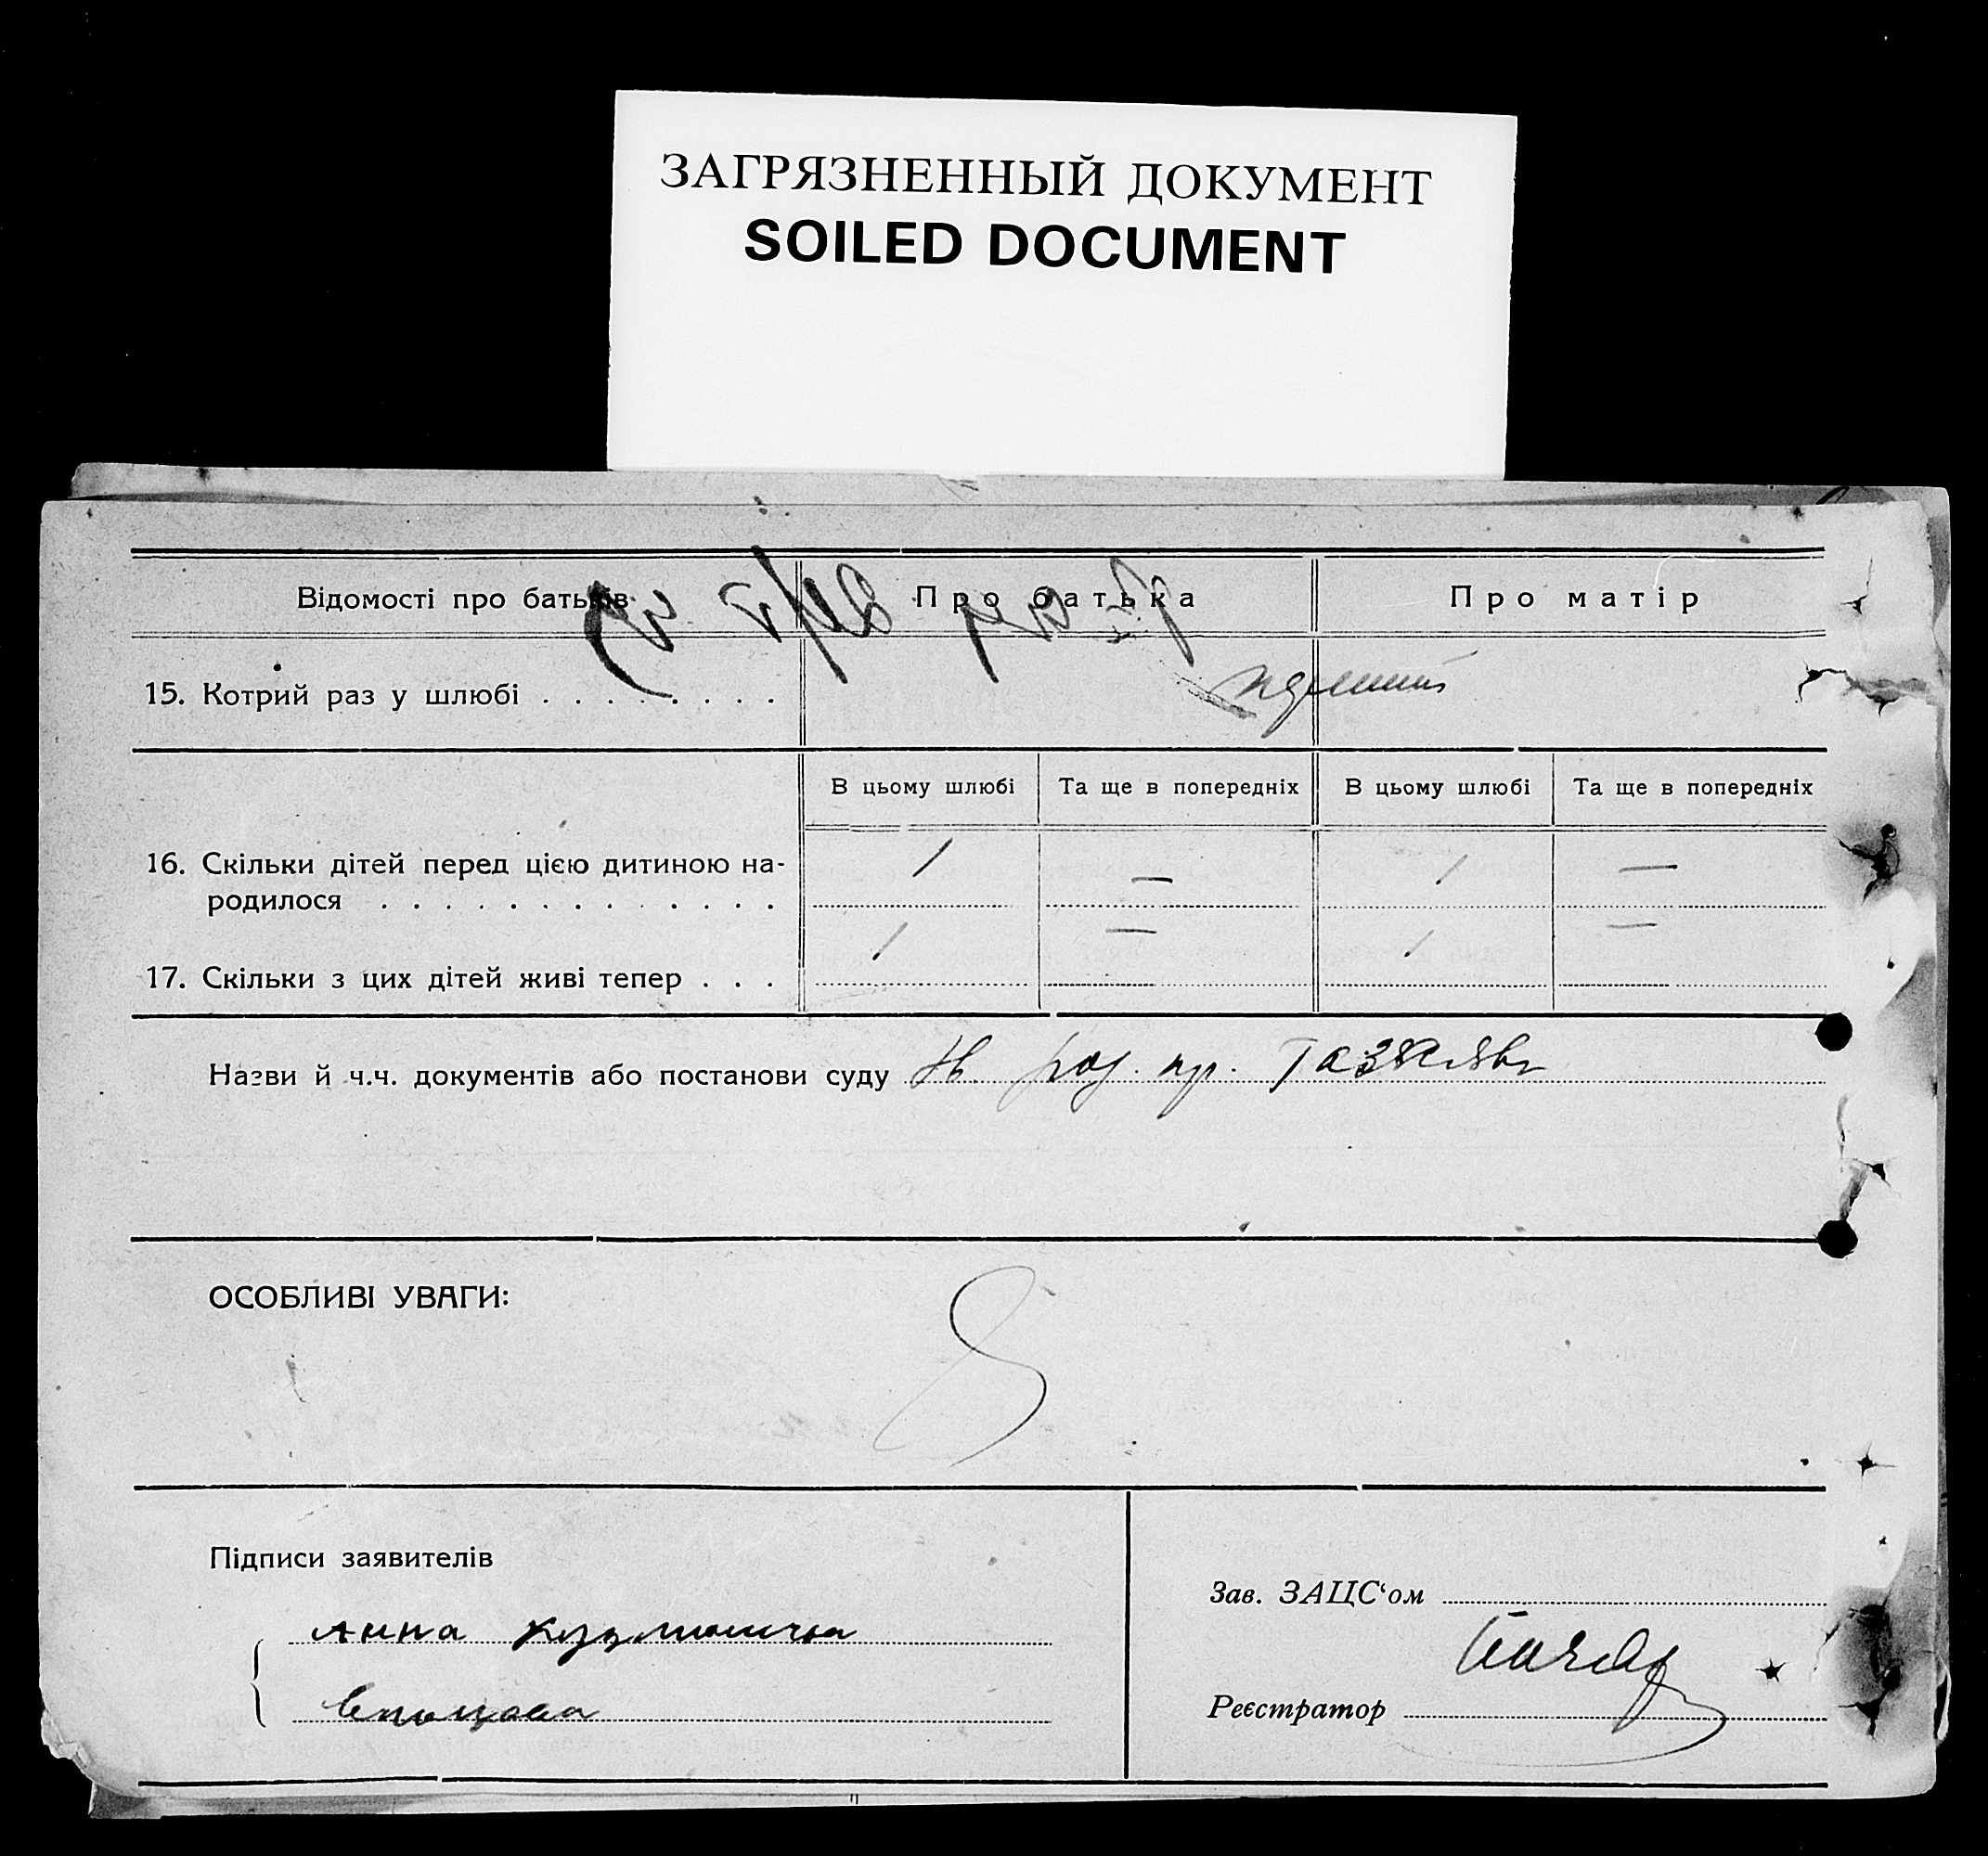 ЗАГРЯЗНЕННЫЙ ДОКУМЕНТ
SOILED DOCUMENT
Відомості про батьків
Про батька
Про матір
15. Котрий раз у шлюбі . . . . . . . .
В цьому шлюбі
Та ще в попередніх
В цьому шлюбі
Та ще в попередніх
16. Скільки дітей перед цією дитиною на-
родилося . . . . . . . . . . . . .
1 — 1 —
17. Скільки з цих дітей живі тепер . . .
1 — 1 —
Назви й ч.ч. документів або постанови суду
ОСОБЛИВІ УВАГИ:
Підписи заявителів
Анна
Зав. ЗАЦС‘ом
Реєстратор